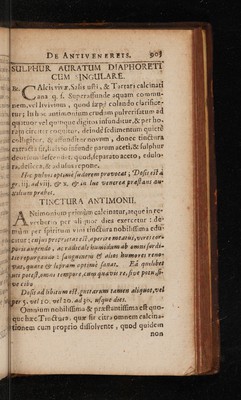 DE ANTIVENEREIS. 905
SULPHUR AURATUM DIAPHORETI
CUM SINGULARE.
Calcis vivæ, Salis usti, & Tartari calcinati
ana q. s. Superaffunde aquam commu-
nem, vel lixivium, quod sæpè colando clarifice-
tur; huic antimonium crudum pulverisatum ad
quatuor vel quinque digitos infunditur, & per ho-
ram
colligitur, & affunditur novum, donec tinctura
extracta sit, salutio infunde parum aceti, & sulphur
descendet, quod, separato aceto, edulco-
ra, desicca, & ad usus repone.
Hic pulvis optimè sudorem provocat; Dosis est à
gr. iij. ad viij. & x. & in lue venerea præstans au-
xilium præstat.
TINCTURA ANTIMONII.
Antimonium primùm calcinatur, atque in re-
verberio per aliquot dies exercetur: de-
mum per spiritum vini tinctura nobilissima edu-
citur; cujus proprietas est, aperire meatus,
& radicali humidum ab omni sordi-
tie repurgando: sanguinem & alios humores reno-
vat, quare & lepram optimè sanat. Ea quolibet
potest, omni tempore, cum quavis re, sive potu, si-
ve cibo.
Dosis ad libitum est, guttarum tamen aliquot, vel
per 5. vel 10. vel 20. ad 30. usque dies.
Omnium nobilissima & præstantissima est quo-
que hæc Tinctura, quæ fit citra omnem calcina-
tionem cum proprio dissolvente, quod quidem
non